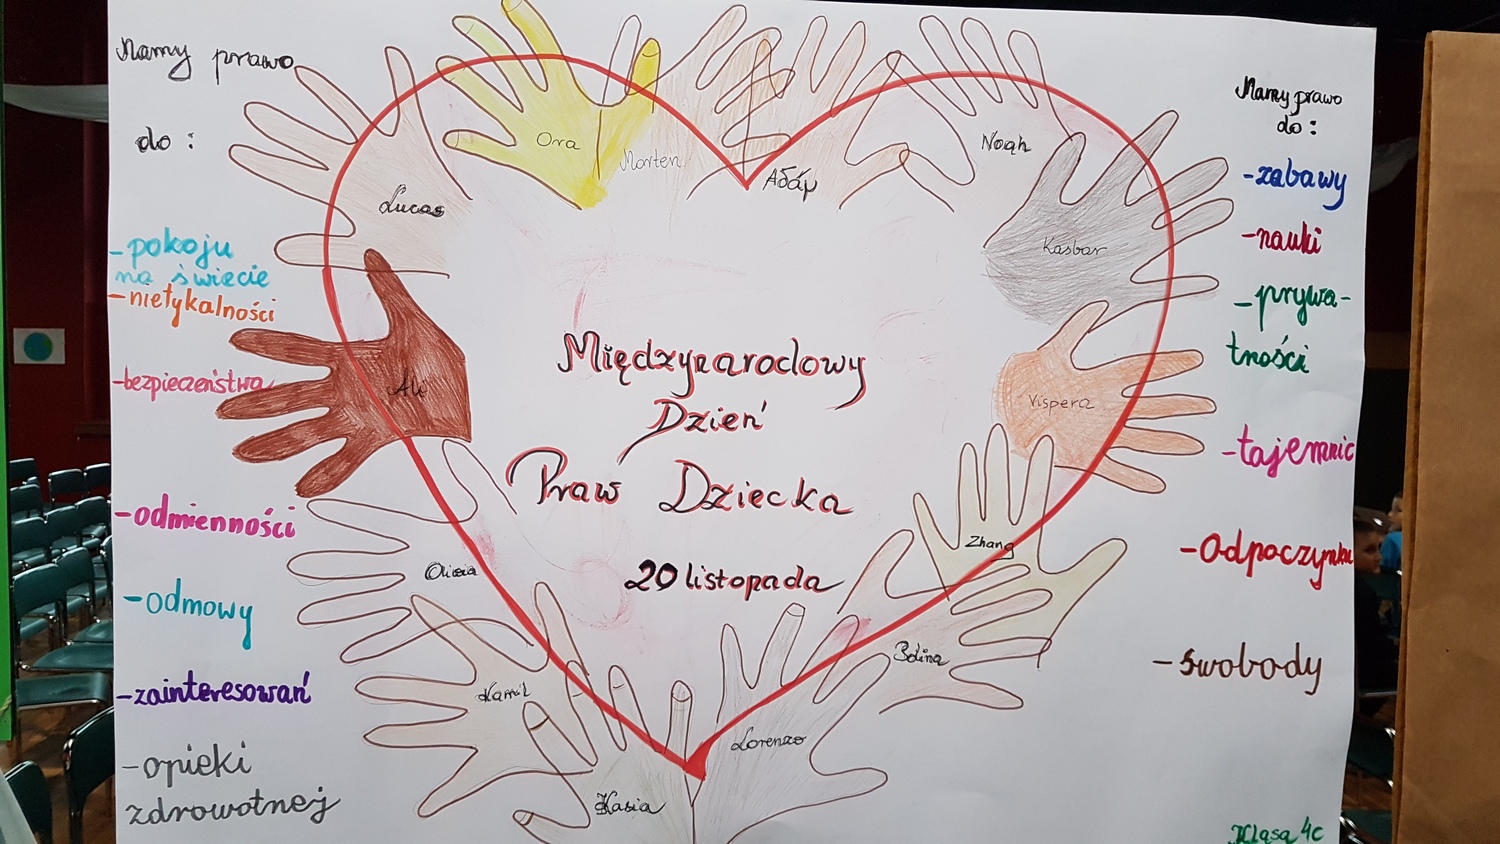 Mamy prawo
do:
-pokoju
na świecie
-nietykalności
-bezpieczeństwa
-odmienności
-odmowy
-zainteresowań
-opieki
zdrowotnej
Lucas
Ora
Morten
Adáp
Noah
Kasbar
Ali
Vispera
Międzynarodowy
Dzień
Praw Dziecka
20 listopada
Zhang
Oliwia
Kamil
Kasia
Lorenzo
Mamy prawo
do:
-zabawy
-nauki
-prywa-
tności
-tajemnic
-Odpoczynku
-swobody
Klasa 4c